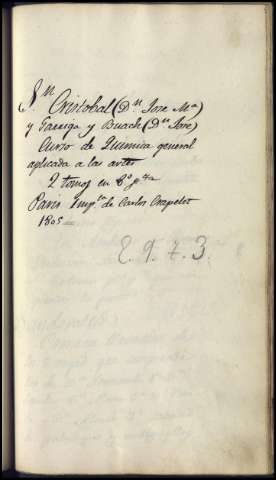 Sn. Cristobal (Dn. Jose Ma)
y Garriga y Buach (Dn. Jose)
Curso de Quimica general
aplicada a las artes
2 tomos en 8o.
Paris Impta de Carlos Crapelet
1805
E. 9. 7. 3.